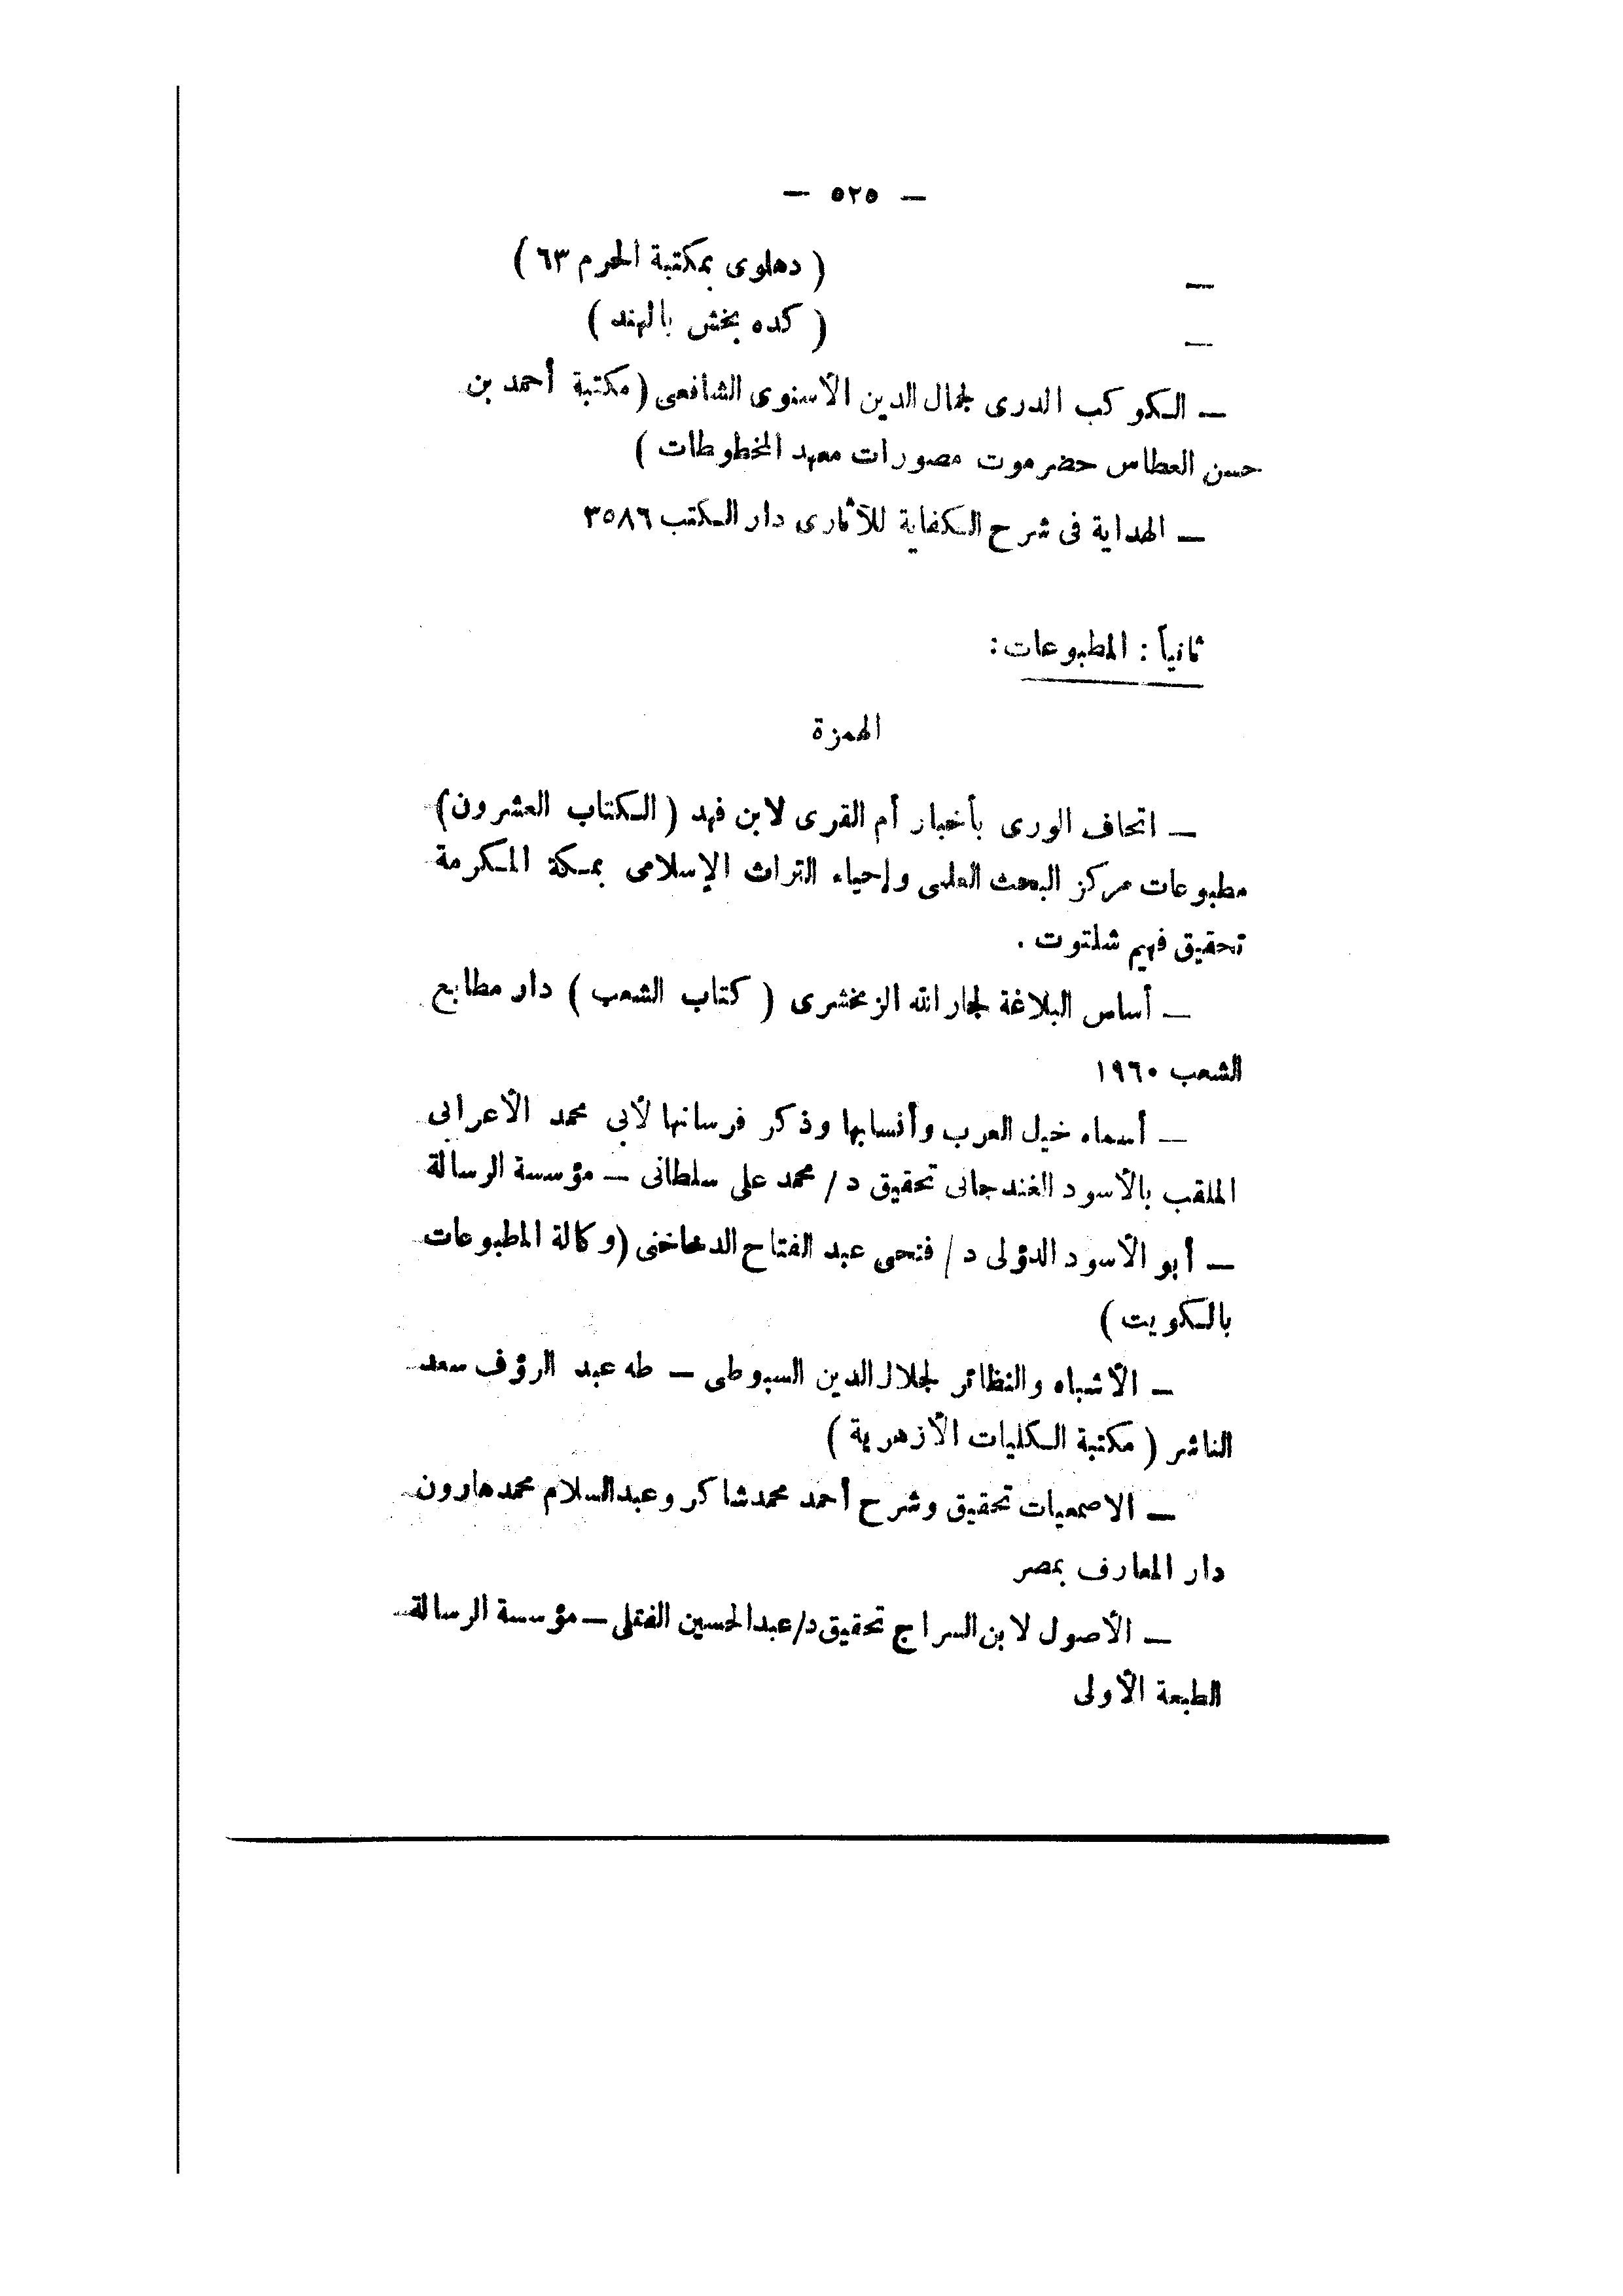 — ٥٢٥ —
— ( دهلوى بمكتبة الحرم ٦٣ )
— ( كده بخش بالهند )
— الكوكب الدرى لجمال الدين الأسنوى الشافعى (مكتبة أحمد بن
حسن العطاس حضرموت مصورات معهد المخطوطات )
— الهداية فى شرح الكفاية للآثارى دار الكتب ٣٥٨٦
ثانياً : المطبوعات :
الهمزة
— اتحاف الورى بأخبار أم القرى لابن فهد ( الكتاب العشرون)
مطبوعات مركز البحث العلمى وإحياء التراث الإسلامى بمكة المكرمة
تحقيق فهيم شلتوت .
— أساس البلاغة لجار الله الزمخشرى ( كتاب الشعب ) دار مطابع
الشعب ١٩٦٠
— أسماء خيل العرب وأنسابها وذكر فرسانها لأبى محمد الأعرابى
الملقب بالأسود الغندجانى تحقيق د / محمد على سلطانى — مؤسسة الرسالة
— أبو الأسود الدؤلى د / فتحى عبد الفتاح الدجاخنى (وكالة المطبوعات
بالكويت )
— الأشباه والنظائر لجلال الدين السيوطى — طه عبد الرؤف سعد
الناشر ( مكتبة الكليات الأزهرية )
— الاصمعيات تحقيق وشرح أحمد محمد شاكر وعبد السلام محمد هارون
دار المعارف بمصر
— الأصول لابن السراج تحقيق د/عبد الحسين الفتلى — مؤسسة الرسالة
الطبعة الأولى